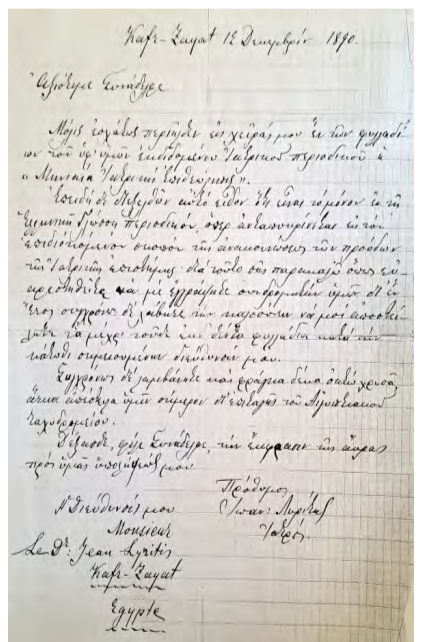 Kafr-Zayat 12 Δεκεμβρίου 1890.
Ἀξιότιμε Συνάδελφε
Μόλις ἐσχάτως περιῆλθεν εἰς χεῖράς μου ἓν τῶν φυλλαδί
ων τοῦ ὑφ' ὑμῶν ἐκδιδομένου Ἰατρικοῦ περιοδικοῦ
"Μηνιαία Ἰατρικὴ Ἐπιθεώρησις".
Ἐπειδὴ δὲ αὐτὸ εἶδον ὅτι εἶναι τὸ μόνον ἐν τῇ
Ἑλληνικῇ γλώσσῃ περιοδικόν, ὅπερ ἀνταποκρίνεται εἰς τὸν
ἐπιδιωκόμενον σκοπὸν τῆς ἀνακοινώσεως τῶν προόδων
τῆς Ἰατρικῆς ἐπιστήμης· διὰ τοῦτο σᾶς παρακαλῶ ὅπως εὐ
αρεστηθῆτε καὶ μὲ ἐγγράψητε συνδρομητὴν ὑμῶν δι' ἓν
ἔτος συγχρόνως δὲ λάβητε τὴν καλοσύνην νὰ μοὶ ἀποστεί
λητε τὰ μέχρι τοῦδε ἐκδοθέντα φυλλάδια κατὰ τὴν
κάτωθι σημειουμένην διεύθυνσίν μου.
Συγχρόνως δὲ λαμβάνετε καὶ φράγκα δέκα ὀκτὼ χρυσᾶ,
ἅτινα ἀπέστειλα ὑμῖν σήμερον δι' ἐπιταγῆς τοῦ Αἰγυπτιακοῦ
ταχυδρομείου.
Δέξασθε, φίλε Συνάδελφε, τὴν ἔκφρασιν τῆς
πρὸς ὑμᾶς ὑπολήψεώς μου
Πρόθυμος
Ἡ Διεύθυνσίς μου Ἰωάν: Λυρίτης
Monsieur Ἰατρός.
Le Dr: Jean Lyritis
Kafr-Zayat
Egypte